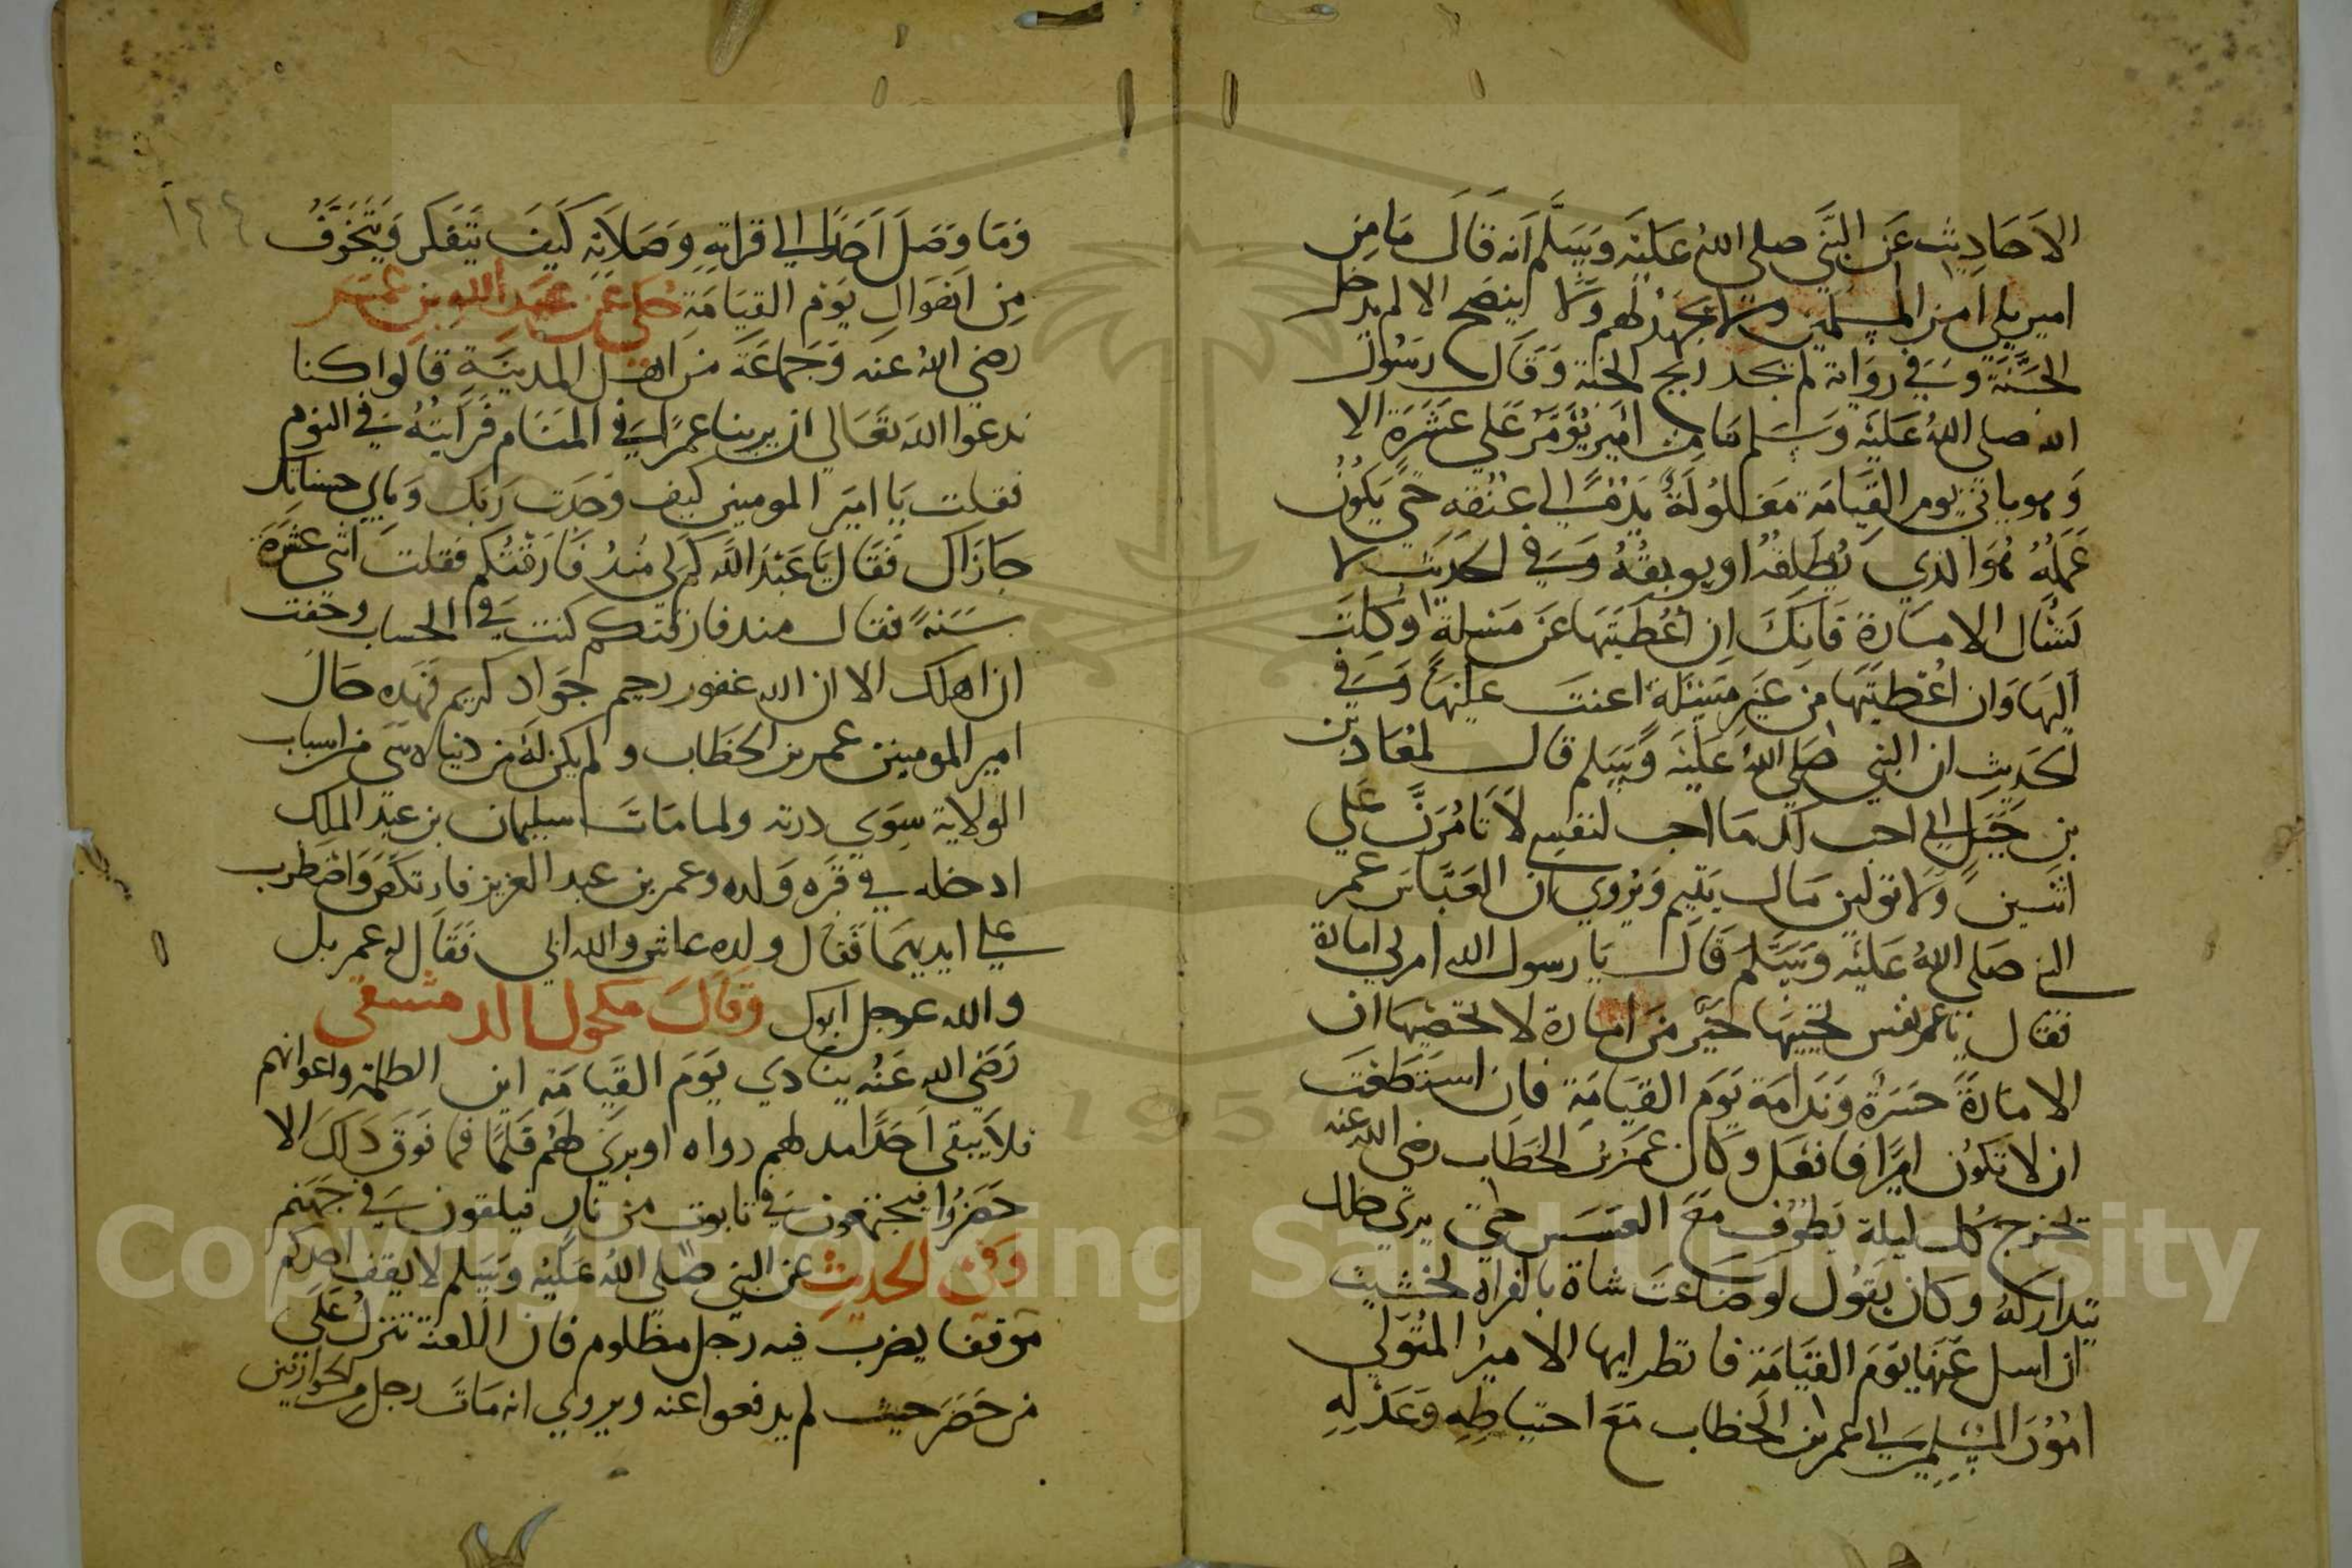 الاحاديث عن النبي صلى الله عليه وسلم انه قال ما من
امير يلي امر المسلمين ولا يجهد لهم ولا ينصح الا لم يدخل
الجنة وفي رواية لم يجد ريح الجنة وقال رسول
الله صلى الله عليه وسلم ما من امير يؤمر على عشرة الا
وهو ياتي يوم القيامة مغلولة يده الي عنقه حتى يكون
عمله هو الذي يطلقه او يوبقه وفي الحديث لا
تسال الامارة فانك ان اعطيتها عن مسلة وكلت
اليها وان اعطيتها من غير مسئلة اعنت عليها وفي
الحديث ان النبي صلى الله عليه وسلم قال لمعاذ بن
بن جبل اني احب لك ما احب لنفسي لا تامرن على
اثنين ولا تولين مال يتيم ويروي ان العباس عم
النبي صلى الله عليه وسلم قال يا رسول الله امرني امارة
فقال يا عم نفس تحييها خير من امارة لا تحصيها ان
الامارة حسرة وندامة يوم القيامة فان استطعت
ان لا تكون اميرا فافعل وكان عمر بن الخطاب رضي الله عنه
يخرج كل ليلة يطوف مع العسس حتى يري خلل
يتداركه وكان يقول لو ضاعت شاة بالفراة لخشيت
ان اسل عنها يوم القيامة فانظر ايها الامير المتولي
امور المسلمين الي عمر بن الخطاب مع احتياطه وعدله
وما وصل احدا الي قراته وصلاته كيف يتفكر ويتخوف
من اهوال يوم القيامة حكى عن عبد الله بن عمر
رضي الله عنه وجماعة من اهل المدينة قالوا كنا
ندعوا الله تعالي ان يرينا عمر في المنام فرايته في النوم
فقلت يا امير المومنين كيف وجدت ربك وباي حسناتك
جازاك فقال يا عبد الله كم لي منذ فارقتكم فقلت اثني عشرة
سنة فقال منذ فارقتكم كنت في الحساب وخفت
ان اهلك الا ان الله غفور رحيم جواد كريم فهذه حال
امير المومنين عمر بن الخطاب ولم يكن له من دنياه شي من اسباب
الولاية سوي درته ولما مات سليمان بن عبد الملك
ادخله في قبره ولده وعمر بن عبد العزيز فارتكض واضطرب
علي ايديهما فقال ولده عاش والله ابي فقال له عمر بل
والله عوجل ابوك وقال مكحول الدمشقي
رضي الله عنه ينادي يوم القيامة اين الظلمة واعوانهم
فلا يبقى احدا مد لهم دواه او بري لهم قلما فما فوق ذلك الا
حضروا فيجتمعون في تابوت من نار فيلقون في جهنم
وفي الحديث عن النبي صلى الله عليه وسلم لا يقف احدكم
موقفا يضرب فيه رجل مظلوم فان اللعنة تنزل علي
من حضر حيث لم يدفعوا عنه ويروي انه مات رجل من الحوارنين
Copyright © King Saud University
1957